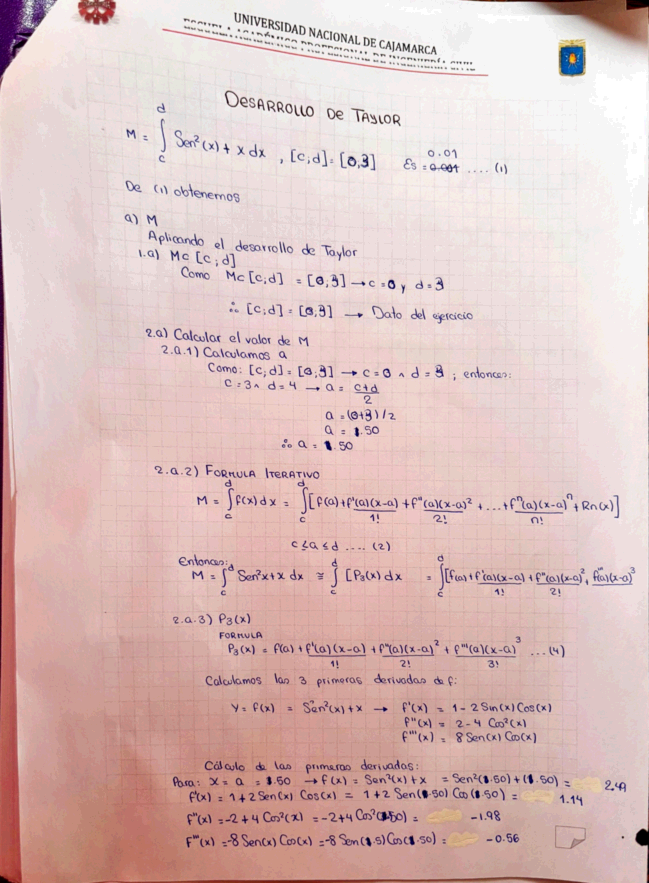 UNIVERSIDAD NACIONAL DE CAJAMARCA
ESCUELA ACADÉMICO PROFESIONAL DE INGENIERÍA CIVIL
DESARROLLO DE TAYLOR
M = ∫_c^d Sen²(x) + x dx , [c,d] = [0,3] Es = 0.001 0.01 .... (1)
De (1) obtenemos
a) M
Aplicando el desarrollo de Taylor
1.a) Mc [c;d]
Como Mc [c;d] = [0,3] → c = 0 y d = 3
∴ [c;d] = [0,3] → Dato del ejercicio
2.a) Calcular el valor de M
2.a.1) Calculamos a
Como: [c;d] = [0,3] → c = 0 ∧ d = 3 ; entonces:
c = 3 ∧ d = 4 → a = (c+d)/2
a = (0+3)/2
a = 1.50
∴ a = 1.50
2.a.2) FORMULA ITERATIVO
M = ∫_c^d f(x) dx = ∫_c^d [f(a) + f'(a)(x-a)/1! + f''(a)(x-a)²/2! + ... + fⁿ(a)(x-a)ⁿ/n! + Rn(x)]
c ≤ a ≤ d .... (2)
Entonces:
M = ∫_c^d Sen²x + x dx ≅ ∫_c^d [P₃(x) dx = ∫_c^d [f(a) + f'(a)(x-a)/1! + f''(a)(x-a)²/2! + f'''(a)(x-a)³
2.a.3) P₃(x)
FORMULA
P₃(x) = f(a) + f'(a)(x-a)/1! + f''(a)(x-a)²/2! + f'''(a)(x-a)³/3! ... (4)
Calculamos las 3 primeras derivadas de f:
Y = f(x) = Sen²(x) + x → f'(x) = 1 - 2 Sin(x) Cos(x)
f''(x) = 2 - 4 Cos²(x)
f'''(x) = 8 Sen(x) Cos(x)
Cálculo de las primeras derivadas:
Para: x = a = 1.50 → f(x) = Sen²(x) + x = Sen²(1.50) + (1.50) = 2.49
f'(x) = 1 + 2 Sen(x) Cos(x) = 1 + 2 Sen(1.50) Cos(1.50) = 1.14
f''(x) = -2 + 4 Cos²(x) = -2 + 4 Cos²(1.50) = -1.98
f'''(x) = -8 Sen(x) Cos(x) = -8 Sen(1.5) Cos(1.50) = -0.56